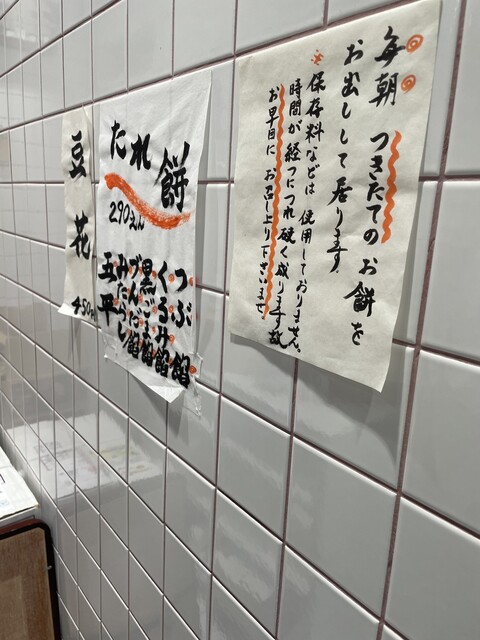 毎朝 つきたてのお餅を
お出しして居ります。
※保存料などは 使用しておりません。
時間が経つにつれ硬く成ります故
お早目に お召し上り下さいませ
たれ餅
290えん
つぶ餡
くるみ餡
黒ごま餡
づんだ餡
みたらし
五平
豆花
450